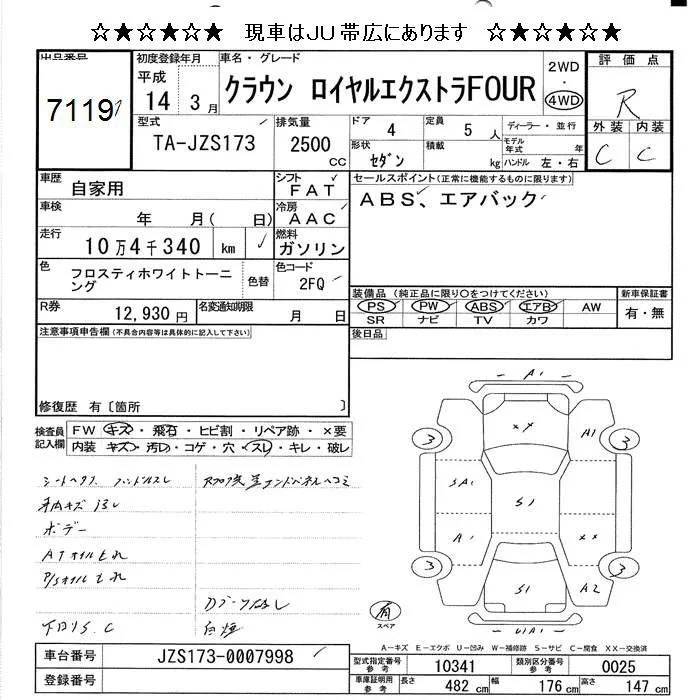 ☆★☆★☆★ 現車はJU帯広にあります ☆★☆★☆★
出品番号
7119
初度登録年月
平成
14年 3月
車名・グレード
クラウン ロイヤルエクストラFOUR
2WD
・
4WD
評価点
R
外装 内装
C C
型式
TA-JZS173
排気量
2500
cc
ドア 4
定員 5人
形状 セダン
積載 kg
ディーラー・並行
モデル年式 年
ハンドル 左・右
車歴
自家用
シフト
FAT
車検
年 月( 日)
冷房
AAC
走行
10万4千340 km
燃料
ガソリン
色
フロスティホワイトトーニング
色替
色コード
2FQ
R券
12,930円
名変通知期限
月 日
セールスポイント(正常に機能するものに限ります)
ABS、エアバック
装備品(純正品に限り○をつけてください)
PS PW ABS エアB AW
SR ナビ TV カワ
新車保証書
有・無
後日品
注意事項申告欄(不具合内容等は具体的に記入して下さい)
修復歴 有〔箇所 〕
検査員記入欄
FW キズ・飛石・ヒビ割・リペア跡・×要
内装 キズ・汚レ・コゲ・穴・スレ・キレ・破レ
シートヘタス ハンドルスレ
ボデー
ATオイルモれ
P/Sオイルモれ
下回りS.C
白煙
A1
3
××
A1
3
SA1
S1
A1
××
3
S1
A2
3
U1A1
スペア
A－キズ E－エクボ U－凹み W－補修跡 S－サビ C－腐食 XX－交換済
車台番号
JZS173-0007998
登録番号
型式指定番号
参考
10341
類別区分番号
参考
0025
車庫証明用
参考
長さ 482 cm
幅 176 cm
高さ 147 cm